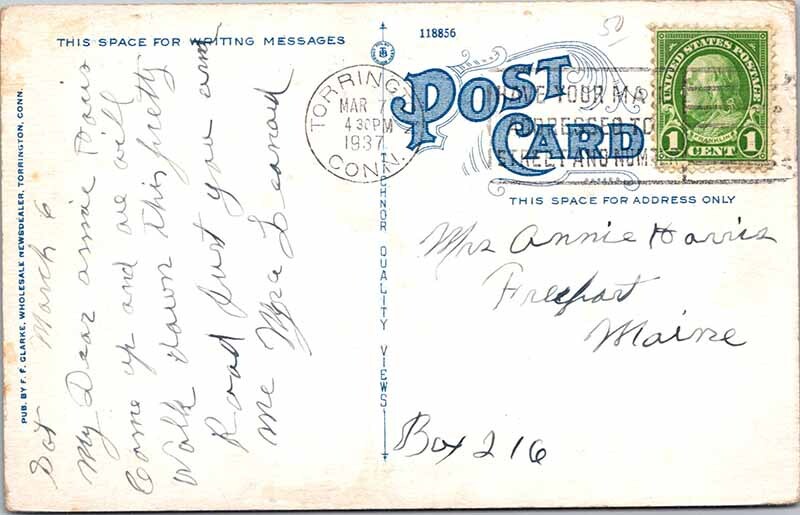 THIS SPACE FOR WRITING MESSAGES
118856
50
POST
CARD
TORRINGT
MAR 7
4 30PM
1937
CONN.
HAVE YOUR MA
ADDRESSED TO
STREET AND NUM
UNITED STATES POSTAGE
FRANKLIN
1 CENT 1
THIS SPACE FOR ADDRESS ONLY
Mrs Annie Harris
Freeport
Maine
Box 216
Sat March 6
My Dear annie
Come up and we will
Walk down this pretty
Road Just you and
me Myra Leonard
PUB. BY F. F. CLARKE, WHOLESALE NEWSDEALER, TORRINGTON, CONN.
TICHNOR QUALITY VIEWS